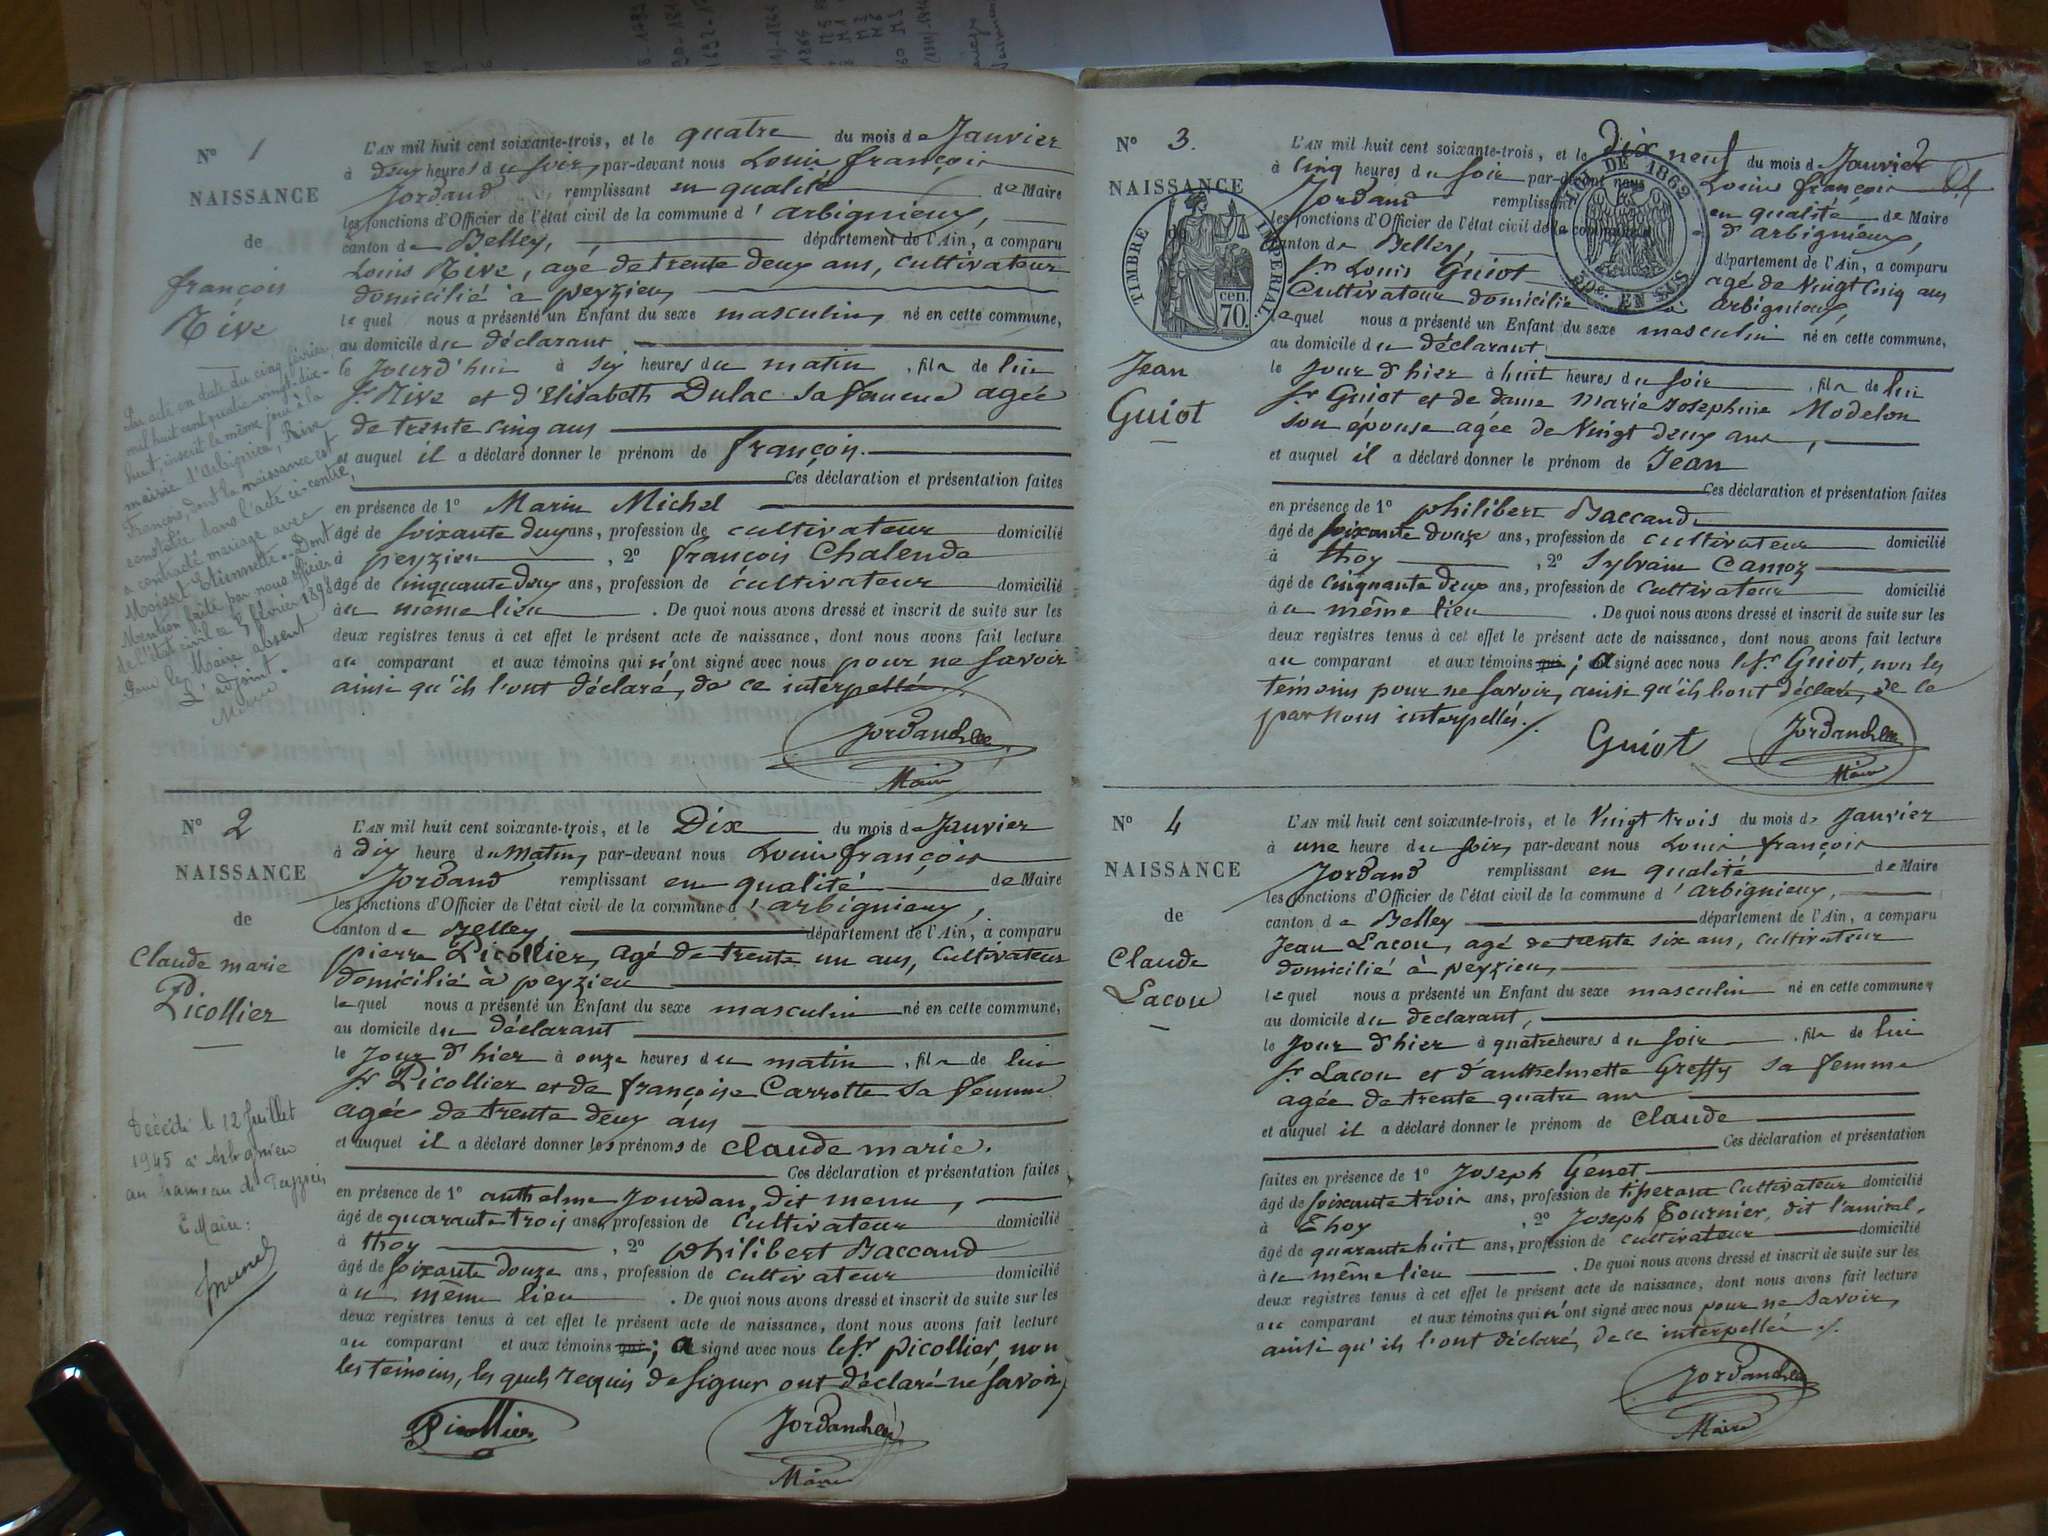 N° 1
NAISSANCE
de
françois
Rive
L'AN mil huit cent soixante-trois, et le quatre du mois de Janvier
à deux heures du soir, par-devant nous Louis françois
Jordand remplissant en qualité de Maire
les fonctions d'Officier de l'état civil de la commune d'arbignieux,
canton de Belley, département de l'Ain, a comparu
Louis Rive, agé de trente deux ans, cultivateur
domicilié à peyzieu
lequel nous a présenté un Enfant du sexe masculin, né en cette commune,
au domicile du déclarant
le Jourd'hui à six heures du matin, fils de lui
Sr Rive et d'Elisabeth Dulac sa femme agée
de trente cinq ans
et auquel il a déclaré donner le prénom de françois.
Ces déclaration et présentation faites
en présence de 1° Marin Michel
âgé de soixante ans, profession de cultivateur domicilié
à peyzieu, 2° françois Chalende
âgé de cinquante deux ans, profession de cultivateur domicilié
au même lieu. De quoi nous avons dressé et inscrit de suite sur les
deux registres tenus à cet effet le présent acte de naissance, dont nous avons fait lecture
au comparant et aux témoins qui n'ont signé avec nous pour ne savoir
ainsi qu'ils l'ont déclaré, de ce interpellés.
Jordand
Maire
Par acte en date du cinq février
mil huit cent quatre-vingt-dix-
huit, inscrit le même jour à la
mairie d'Arbignieu, Rive
François, dont la naissance est
constatée dans l'acte ci-contre,
a contracté mariage avec
Moisset Etiennette. Dont
Mention faite par nous officier
de l'état civil ce 5 février 1898
Pour le Maire absent
L'adjoint.
N° 2
NAISSANCE
de
Claude marie
Picollier
L'AN mil huit cent soixante-trois, et le Dix du mois de Janvier
à dix heure du matin, par-devant nous Louis françois
Jordand remplissant en qualité de Maire
les fonctions d'Officier de l'état civil de la commune d'arbignieux,
canton de Belley, département de l'Ain, a comparu
pierre Picollier, agé de trente un ans, Cultivateur
domicilié à peyzieu
lequel nous a présenté un Enfant du sexe masculin né en cette commune,
au domicile du déclarant
le Jour d'hier à onze heures du matin, fils de lui
Sr Picollier et de françoise Carrotte sa femme
agée de trente deux ans
et auquel il a déclaré donner les prénoms de claude marie.
Ces déclaration et présentation faites
en présence de 1° anthelme Jourdan, dit menu,
âgé de quarante trois ans, profession de cultivateur domicilié
à thoy, 2° philibert Baccand
âgé de soixante douze ans, profession de cultivateur domicilié
au même lieu. De quoi nous avons dressé et inscrit de suite sur les
deux registres tenus à cet effet le présent acte de naissance, dont nous avons fait lecture
au comparant et aux témoins qui; a signé avec nous le Sr picollier, non
les témoins, les quels requis de signer ont déclaré ne savoir
Picollier
Jordand
Maire
Décédé le 12 Juillet
1945 à Arbignieu
au hameau de Peyzieu
Le Maire:
N° 3.
NAISSANCE
de
TIMBRE IMPERIAL
cen.
70.
LOI DE 1862
50c. EN SUS
Jean
Guiot
L'AN mil huit cent soixante-trois, et le dix neuf du mois de Janvier
à cinq heures du soir par-devant nous Louis françois
Jordand remplissant en qualité de Maire
les fonctions d'Officier de l'état civil de la commune d'arbignieux,
canton de Belley, département de l'Ain, a comparu
Sr Louis Guiot agé de vingt cinq ans
Cultivateur domicilié à arbignieux,
lequel nous a présenté un Enfant du sexe masculin né en cette commune,
au domicile du déclarant
le Jour d'hier à huit heures du soir, fils de lui
Sr Guiot et de dame marie Josephine Modelon
son épouse agée de Vingt deux ans,
et auquel il a déclaré donner le prénom de Jean
Ces déclaration et présentation faites
en présence de 1° philibert Baccand
âgé de soixante douze ans, profession de cultivateur domicilié
à thoy, 2° Sylvain Camoz
âgé de cinquante deux ans, profession de cultivateur domicilié
au même lieu. De quoi nous avons dressé et inscrit de suite sur les
deux registres tenus à cet effet le présent acte de naissance, dont nous avons fait lecture
au comparant et aux témoins qui; a signé avec nous le Sr Guiot, non les
témoins pour ne savoir, ainsi qu'ils l'ont déclaré, de ce
par nous interpellés.
Guiot
Jordand
Maire
N° 4
NAISSANCE
de
Claude
Lacou
L'AN mil huit cent soixante-trois, et le Vingt trois du mois de Janvier
à une heure du soir, par-devant nous Louis françois
Jordand remplissant en qualité de Maire
les fonctions d'Officier de l'état civil de la commune d'arbignieux,
canton de Belley département de l'Ain, a comparu
Jean Lacou, agé de trente six ans, cultivateur
domicilié à peyzieu,
lequel nous a présenté un Enfant du sexe masculin né en cette commune,
au domicile du declarant,
le Jour d'hier à quatre heures du soir, fils de lui
Sr Lacou et d'anthelmette Greffy sa femme
agée de trente quatre ans
et auquel il a déclaré donner le prénom de claude
Ces déclaration et présentation
faites en présence de 1° Joseph Genet
âgé de soixante trois ans, profession de cultivateur domicilié
à Thoy, 2° Joseph Fournier, dit l'amiral,
âgé de quarante huit ans, profession de cultivateur domicilié
au même lieu. De quoi nous avons dressé et inscrit de suite sur les
deux registres tenus à cet effet le présent acte de naissance, dont nous avons fait lecture
au comparant et aux témoins qui n'ont signé avec nous pour ne savoir,
ainsi qu'ils l'ont déclaré, de ce interpellés.
Jordand
Maire